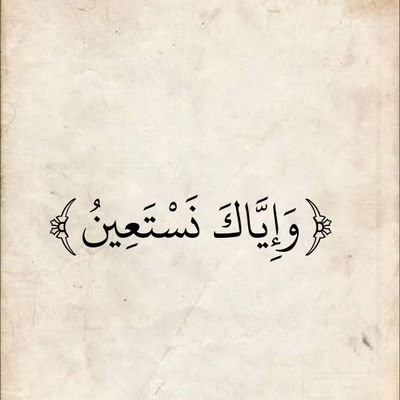 ﴿وَإِيَّاكَ نَسْتَعِينُ﴾